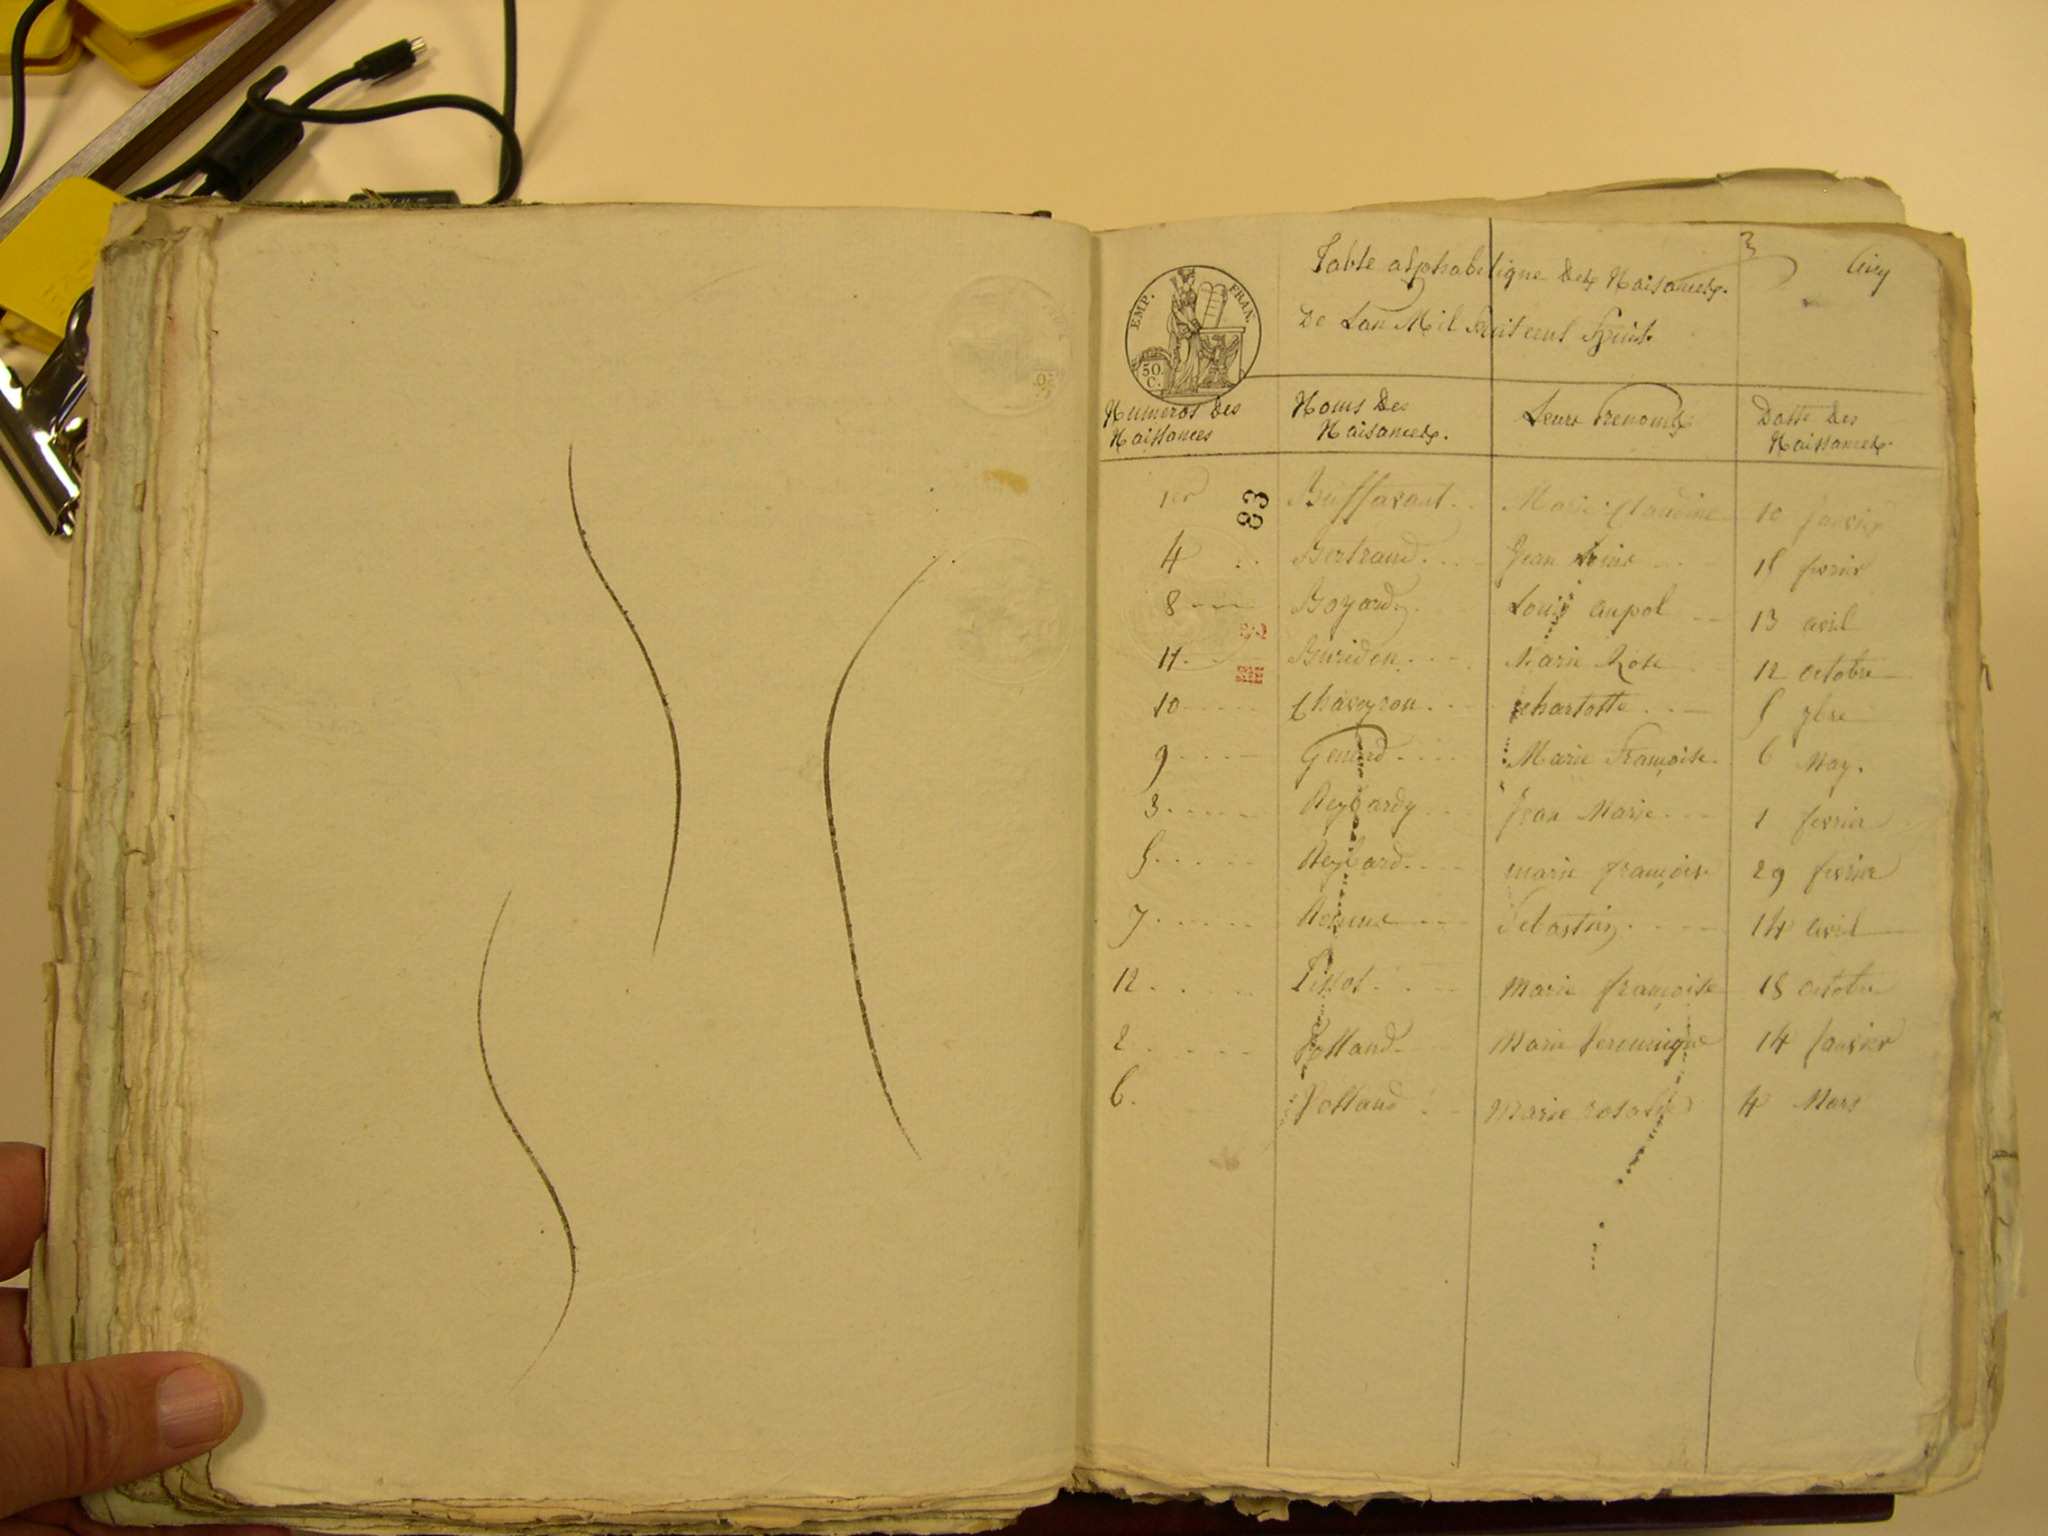 3
Table alphabetique des Naisances.
De Lan Mil huit cent huit.
EMP. FRAN.
50.
C.
Numeros des Naissances Noms des Naisances. Leurs Prenoms Datte des Naissances.
83
1er Buffavant Marie Claudine 10 janvier
4 Bertrand Jean 15 fevrier
8 Boyard Louis 13 avril
11 Buriden Marie Rose 12 octobre
10 Chaveyron charlotte 5 7bre
9 Genard Marie Françoise. 6 May.
3 Reybardy Jean Marie 1 fevrier
5 Reybard marie françoise 29 fevrier
7 Sebastien 14 avril
12 Tissot marie françoise 18 octobre
2 Rolland Marie veronnique 14 janvier
6. Rolland Marie rosalie 4 Mars